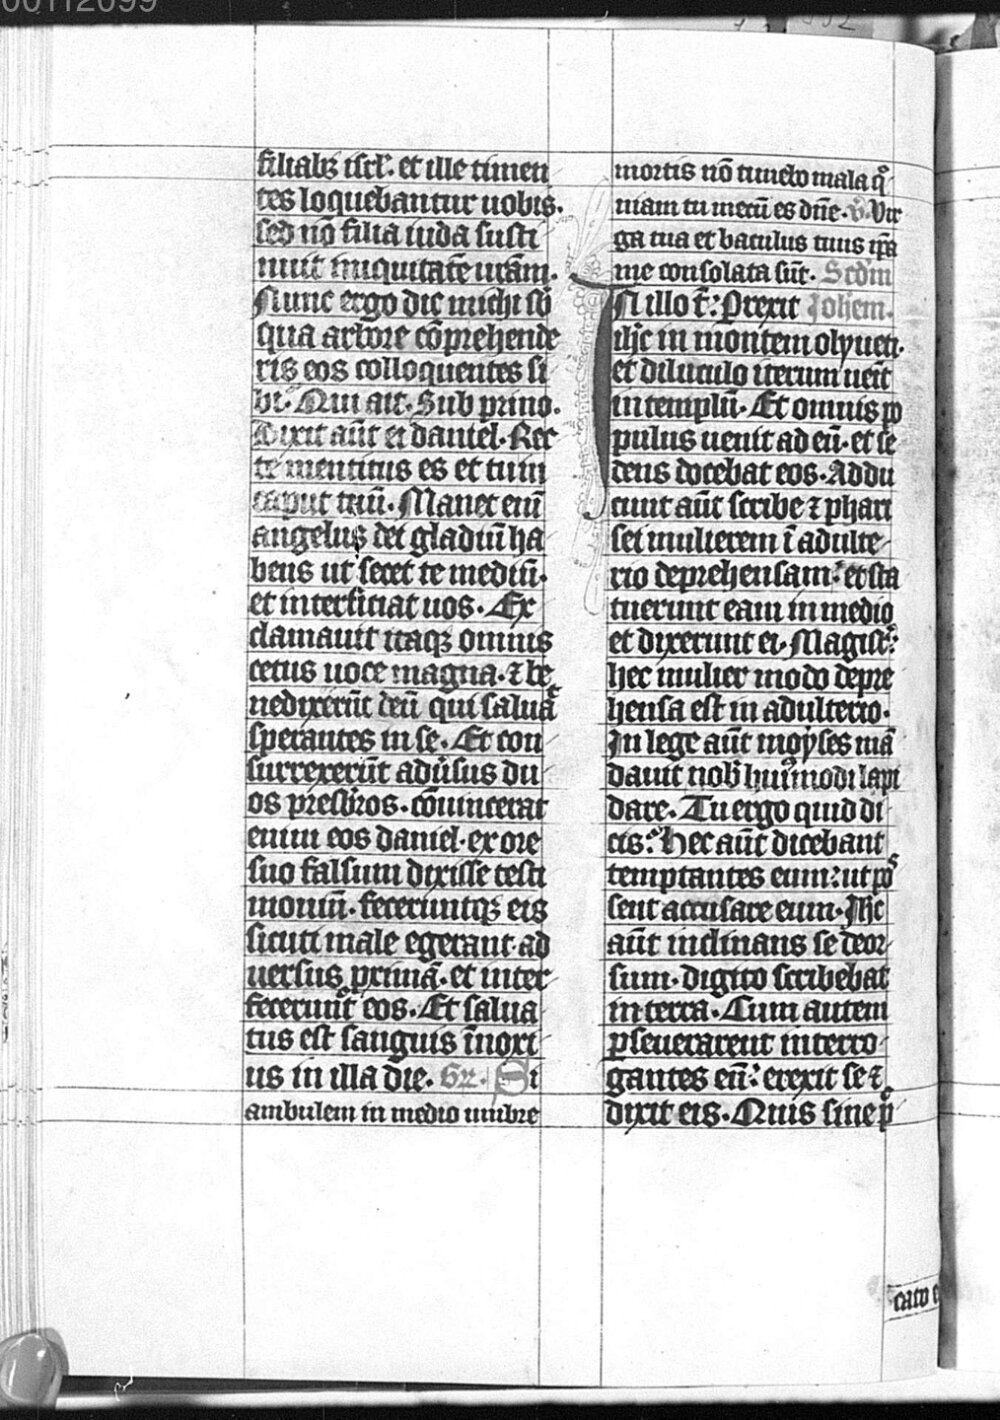 00112099
filiabꝫ isrl'. et ille timen
tes loquebantur uobis.
sed nō filia iuda susti
nuit iniquitatē urām.
Nunc ergo dic michi sb̄
qua arbore cōprehende
ris eos colloquentes si
bi. Qui ait. Sub prino.
Dixit aūt ei daniel. Rec
te mentitus es et tu in
caput tuū. Manet eni̅
angelus dei gladiū ha
bens ut secet te mediū.
et interficiat uos. Ex
clamauit itaqꝫ omnis
cetus uoce magna. ⁊ be
nedixerūt deū qui saluāt
sperantes in se. Et con
surrexerūt aduˀsus du
os presbr̄os. cōuincerat
enim eos daniel. ex ore
suo falsum dixisse testi
moniū. feceruntqꝫ eis
sicuti male egerant. ad
uersus primā. et inter
fecerūt eos. Et salua
tus est sanguis īnoxi
us in illa die. Gr. Si
ambulem in medio umbre
mortis nō timebo mala qͦ
niam tu mecū es dn̄e. v̄. Vir
ga tua et baculus tuus ip̄a
me consolata sūt. Scdm
IN illo t̄: Prexit Johem.
ihc̄ in montem olyueti.
et diluculo iterum ueīt
in templū. Et omnis po
pulus uenit ad eū. et se
dens docebat eos. Addu
cunt aūt scribe ⁊ phari
sei mulierem ī adulte
rio deprehensam: et sta
tuerunt eam in medio
et dixerunt ei. Magist̄:
hec mulier modo depre
hensa est in adulterio.
In lege aūt moyses mā
dauit nob̄ huiˀmodi lapi
dare. Tu ergo quid di
cis: Hec aūt dicebant
temptantes eum: ut poˢ
sent accusare eum. Ihc̄
aūt inclinans se deor
sum. digito scribebat
in terra. Cum autem
pseuerarent interro
gantes eū: erexit se ⁊
dixit eis. Quis sine p̄
cato e